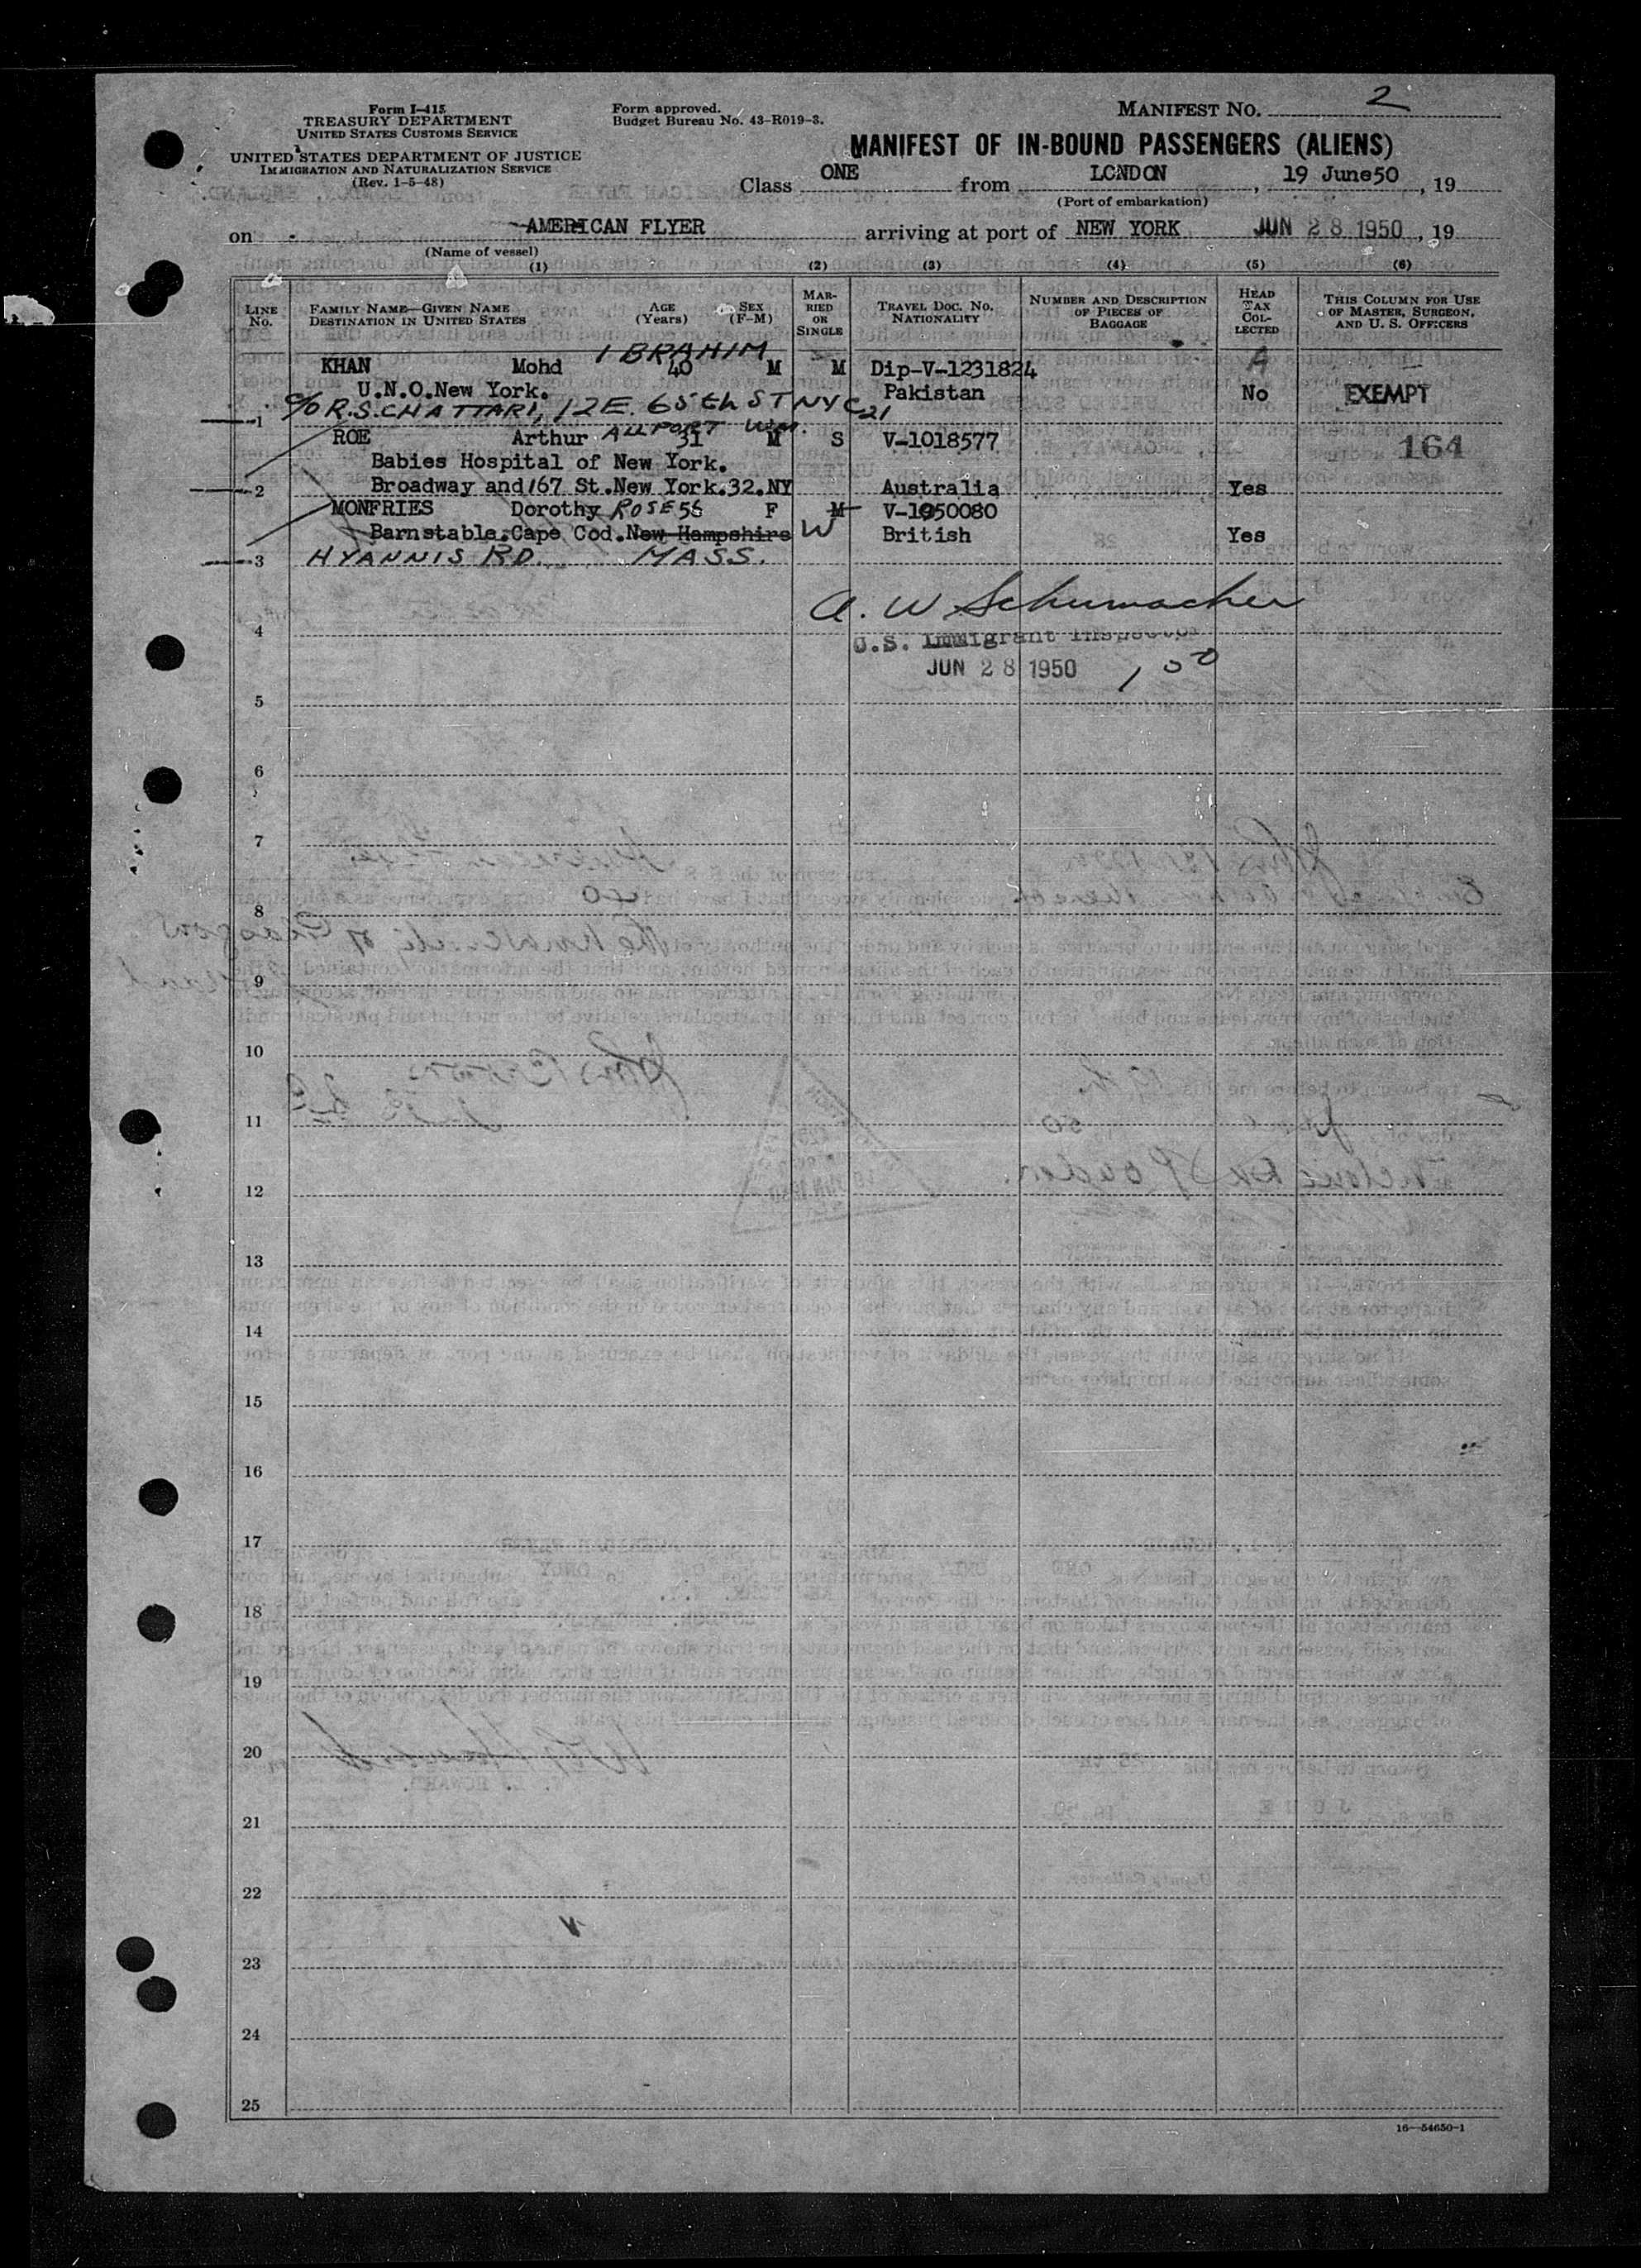 Form I-415
TREASURY DEPARTMENT
UNITED STATES CUSTOMS SERVICE
UNITED STATES DEPARTMENT OF JUSTICE
IMMIGRATION AND NATURALIZATION SERVICE
(Rev. 1-5-48)
Form approved.
Budget Bureau No. 43-R019-3.
MANIFEST NO. 2
MANIFEST OF IN-BOUND PASSENGERS (ALIENS)
Class ONE from LONDON, 19 June50, 19
(Port of embarkation)
on AMERICAN FLYER arriving at port of NEW YORK JUN 28 1950, 19
(Name of vessel)
(1) (2) (3) (4) (5) (6)
LINE No. FAMILY NAME—GIVEN NAME DESTINATION IN UNITED STATES AGE (Years) SEX (F-M) MARRIED OR SINGLE TRAVEL DOC. NO. NATIONALITY NUMBER AND DESCRIPTION OF PIECES OF BAGGAGE HEAD TAX COLLECTED THIS COLUMN FOR USE OF MASTER, SURGEON, AND U. S. OFFICERS
IBRAHIM
KHAN Mohd 40 M M Dip-V-1231824 A
U.N.O.New York. Pakistan No EXEMPT
1 c/o R.S. CHATTARI, 12 E. 65th ST NYC 21
ROE Arthur ALLPORT WM. 31 M S V-1018577 164
Babies Hospital of New York.
2 Broadway and 167 St.New York.32.NY Australia Yes
MONFRIES Dorothy ROSE 56 F M V-1050080
Barnstable.Cape Cod.New Hampshire W British Yes
3 HYANNIS RD. MASS.
A. W Schumacher
4
U.S. Immigrant Inspector
JUN 28 1950 1 50
5
6
7
8
9
10
11
12
13
14
15
16
17
18
19
20
21
22
23
24
25
16—54650-1